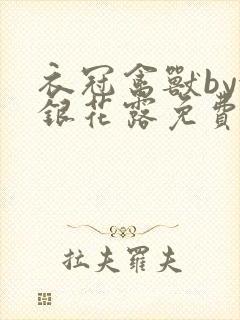 衣冠禽獸by
銀花露免費
拉夫羅夫